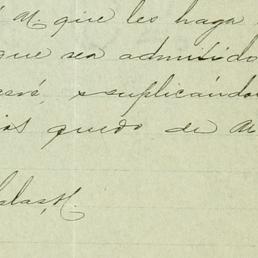 á M. que les haga
que sea admitido
suplicándo
quedo de M.
alas, M.